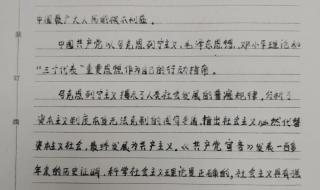 中国最广大人民的根本利益。
中国共产党以马克思列宁主义、毛泽东思想、邓小平理论和
“三个代表”重要思想作为自己的行动指南。
马克思列宁主义揭示了人类社会发展的普遍规律，分析了
资本主义制度本身无法克服的固有矛盾，指出社会主义必然代替
资本主义社会，最终发展为共产主义。《共产党宣言》发表一百多
年来的历史证明，科学社会主义理论是正确的，社会主义具有强